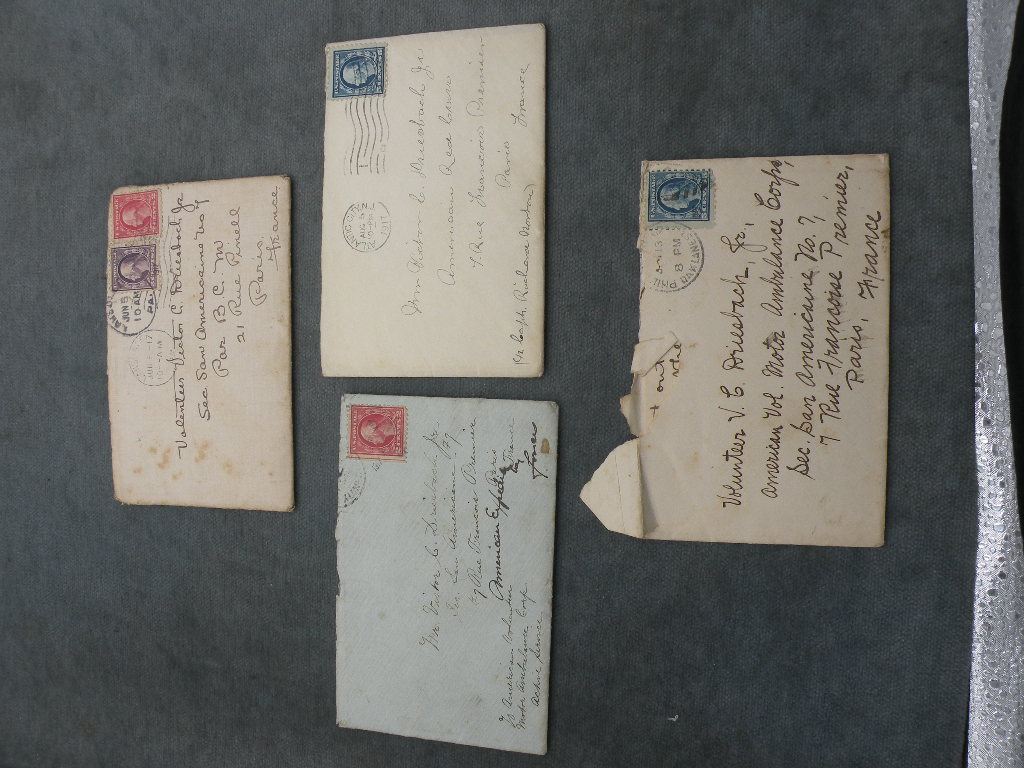 JUN 5
10 AM
PA.
Volenteer Victor C. Driesbach Jr
Sec San Americaine No 7
Par B. C. M
21 Rue Pinell
Paris.
France
AUG 5
1917
Mr Victor C. Driesbach Jr.
American Red Cross
7 Rue Francois Premier
Paris
France
c/o Capt. Norton
Mr Victor C. Driesbach Jr.
Sec. San Americaine
7 Rue Francois Premier
Paris
France
American
c/o American Volunteer
Motor Ambulance Corp
Active Service
PHIL
8 PM
Volunteer V. C. Driesbach, Jr.,
American Vol. Motor Ambulance Corps,
Sec. San Americaine No. 7
7 Rue Francoise Premier,
Paris, France